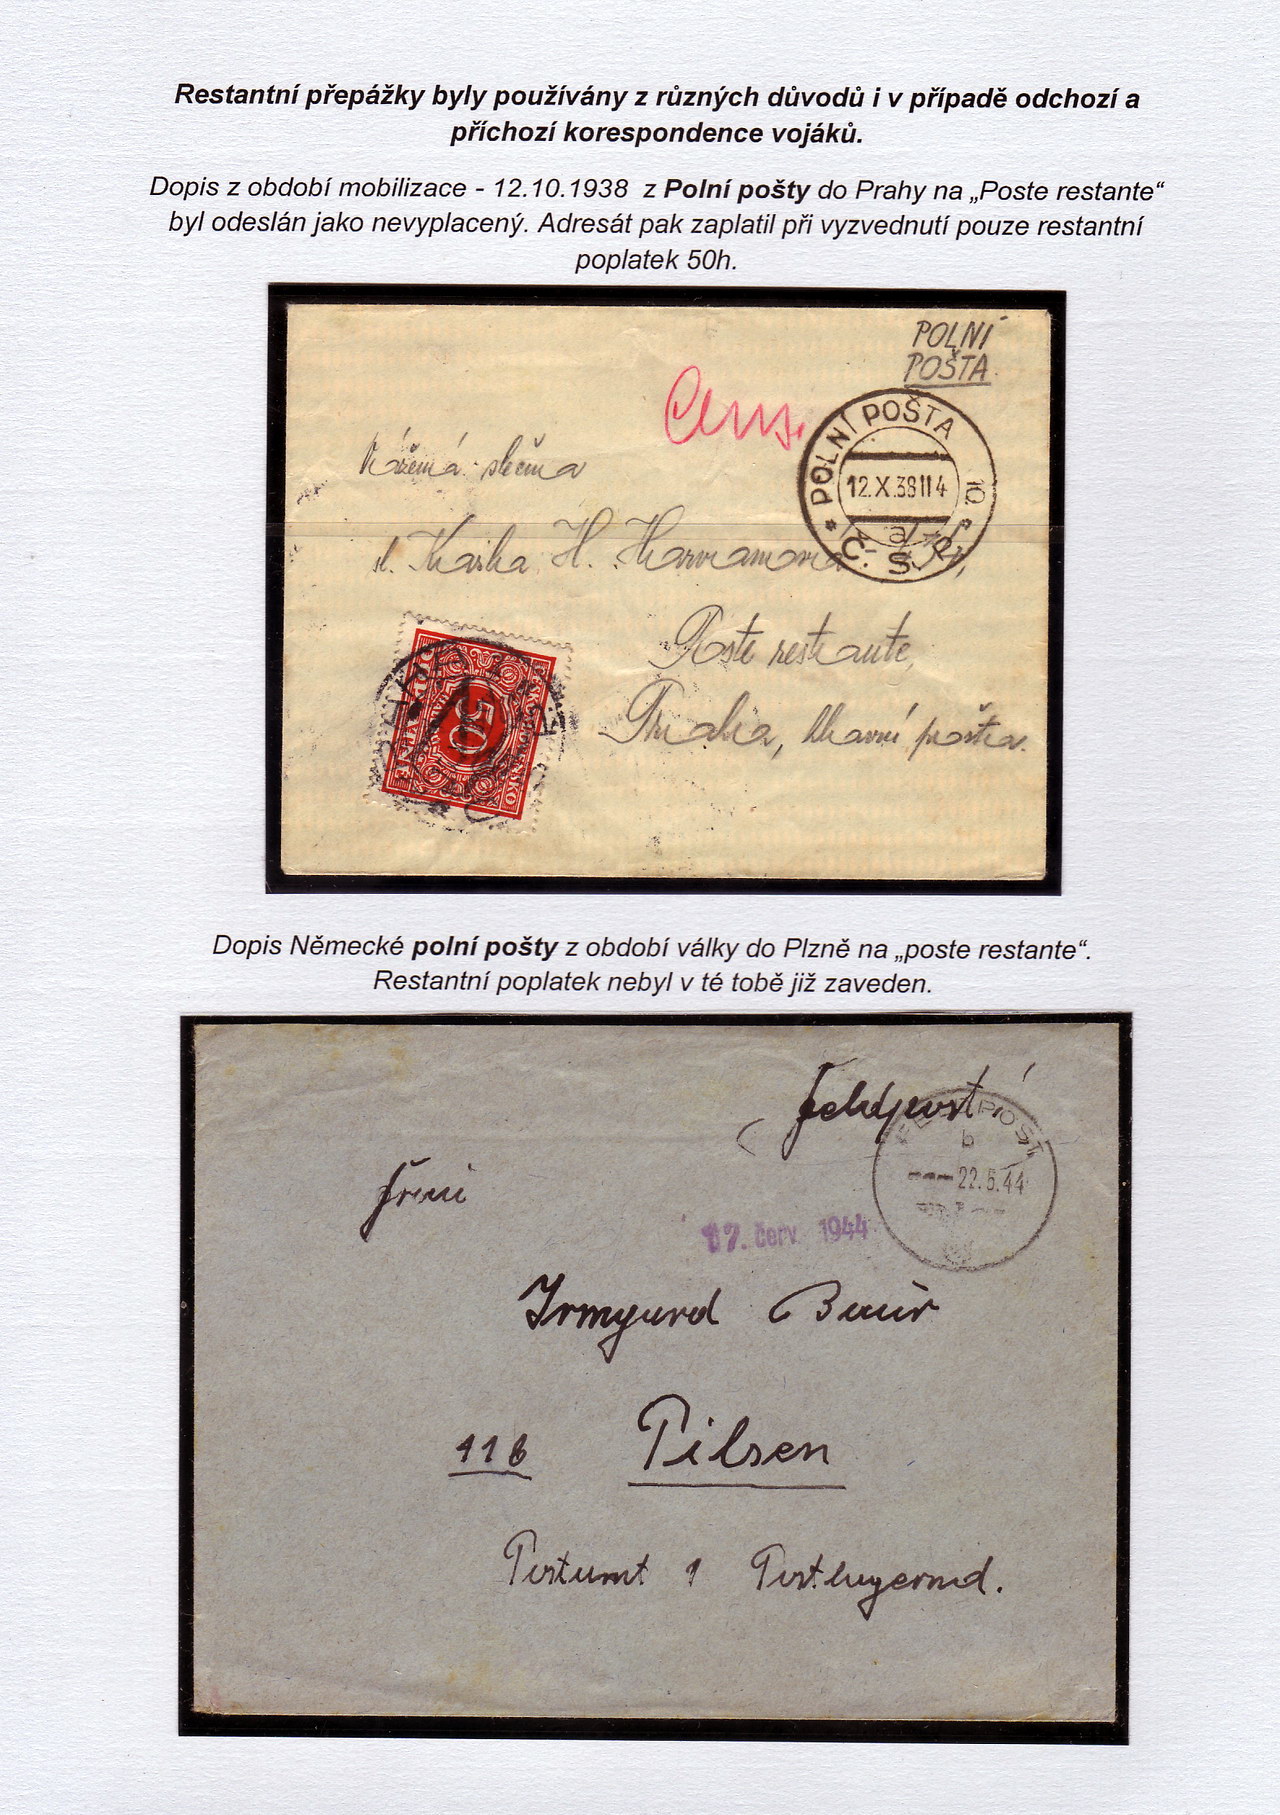 Restantní přepážky byly používány z různých důvodů i v případě odchozí a
příchozí korespondence vojáků.
Dopis z období mobilizace - 12.10.1938 z Polní pošty do Prahy na „Poste restante“
byl odeslán jako nevyplacený. Adresát pak zaplatil při vyzvednutí pouze restantní
poplatek 50h.
POLNÍ
POŠTA
Cens.
POLNÍ POŠTA
10.
12.X.38 II 4
a
Č. S. P.
slečna
H.
Poste restante,
Praha, hlavní pošta.
ČESKOSLOVENSKO
50
DOPLATNÉ
Dopis Německé polní pošty z období války do Plzně na „poste restante“.
Restantní poplatek nebyl v té tobě již zaveden.
Feldpost
FELDPOST
b
22.6.44
17. červ. 1944
Frau
Irmgard Baur
11b Pilsen
Postamt 1 Postlagernd.